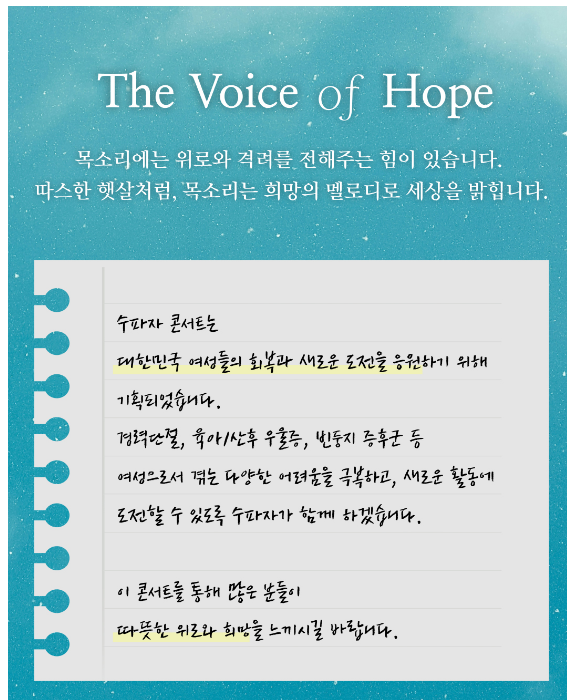 The Voice of Hope
목소리에는 위로와 격려를 전해주는 힘이 있습니다.
따스한 햇살처럼, 목소리는 희망의 멜로디로 세상을 밝힙니다.
수파자 콘서트는
대한민국 여성들의 회복과 새로운 도전을 응원하기 위해
기획되었습니다.
경력단절, 육아/산후 우울증, 빈둥지 증후군 등
여성으로서 겪는 다양한 어려움을 극복하고, 새로운 활동에
도전할 수 있도록 수파자가 함께 하겠습니다.
이 콘서트를 통해 많은 분들이
따뜻한 위로와 희망을 느끼시길 바랍니다.